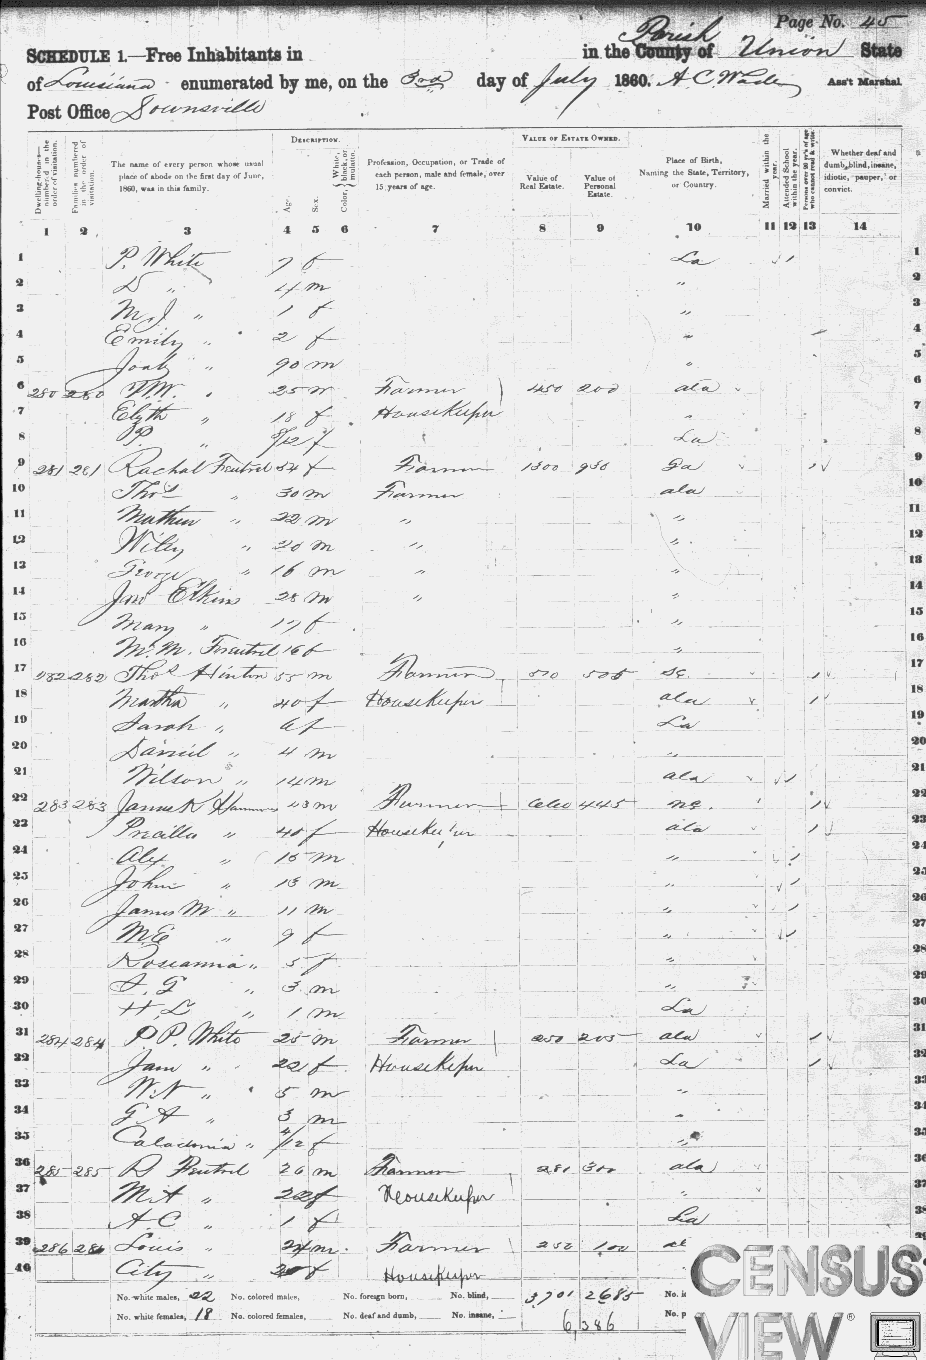 Page No. 45
SCHEDULE 1.—Free Inhabitants in in the County of Parish Union State
of Louisiana enumerated by me, on the 3rd day of July 1860. A. C. White Ass't Marshal
Post Office Downsville
Dwelling-houses—numbered in the order of visitation.
Families numbered in the order of visitation.
The name of every person whose usual place of abode on the first day of June, 1860, was in this family.
DESCRIPTION.
Age.
Sex.
Color, { White, black, or mulatto.
Profession, Occupation, or Trade of each person, male and female, over 15 years of age.
VALUE OF ESTATE OWNED.
Value of Real Estate.
Value of Personal Estate.
Place of Birth, Naming the State, Territory, or Country.
Married within the year.
Attended School within the year.
Persons over 20 y'rs of age who cannot read & write.
Whether deaf and dumb, blind, insane, idiotic, pauper, or convict.
1 2 3 4 5 6 7 8 9 10 11 12 13 14
1 P. White 7 f La / 1
2 D " 4 m " 2
3 M. J " 1 f " 3
4 Emily " 2 f " 4
5 90 m " 5
6 280 280 " 25 m Farmer 450 200 ala 6
7 " 18 f HouseKeeper " 7
8 P P " 8/12 f La 8
9 281 281 Rachal 54 f Farmer 1300 950 Ga / 9
10 Thos " 30 m Farmer ala 10
11 " 22 m " " 11
12 Wiley " 20 m " " 12
13 " 16 m " " 13
14 Elkins 28 m " " 14
15 Mary " 17 f " 15
16 M. M. 16 f " 16
17 282 282 Thos Hinton 55 m Farmer 505 SC. / 17
18 Martha " 40 f HouseKeeper ala / 18
19 Sarah " 6 f La 19
20 Daniel " 4 m " 20
21 Wilson " 14 m ala / 21
22 283 283 James K 43 m Farmer 445 NC. / 22
23 " 40 f HouseKeeper ala / 23
24 Alex " 15 m " / 24
25 John " 13 m " / 25
26 James M " 11 m " / 26
27 M. E " 9 f " / 27
28 Roseanna " 5 f " 28
29 " 3 m " 29
30 H L " 1 m La 30
31 284 284 P P. White 25 m Farmer 250 205 ala / 31
32 Jane " 22 f HouseKeeper La / 32
33 W. N " 5 m " 33
34 G A " 3 m " 34
35 Caladonia " 4/12 f " 35
36 285 285 26 m Farmer 281 300 ala 36
37 M A " 20 f HouseKeeper " 37
38 A C " 1 f La 38
39 286 286 Louis " 24 m Farmer 250 100 39
40 City " 20 f HouseKeeper
No. white males, 22 No. colored males, No. foreign born, No. blind, 3701 2685
No. white females, 18 No. colored females, No. deaf and dumb, No. insane,
6,386
CENSUS
VIEW®